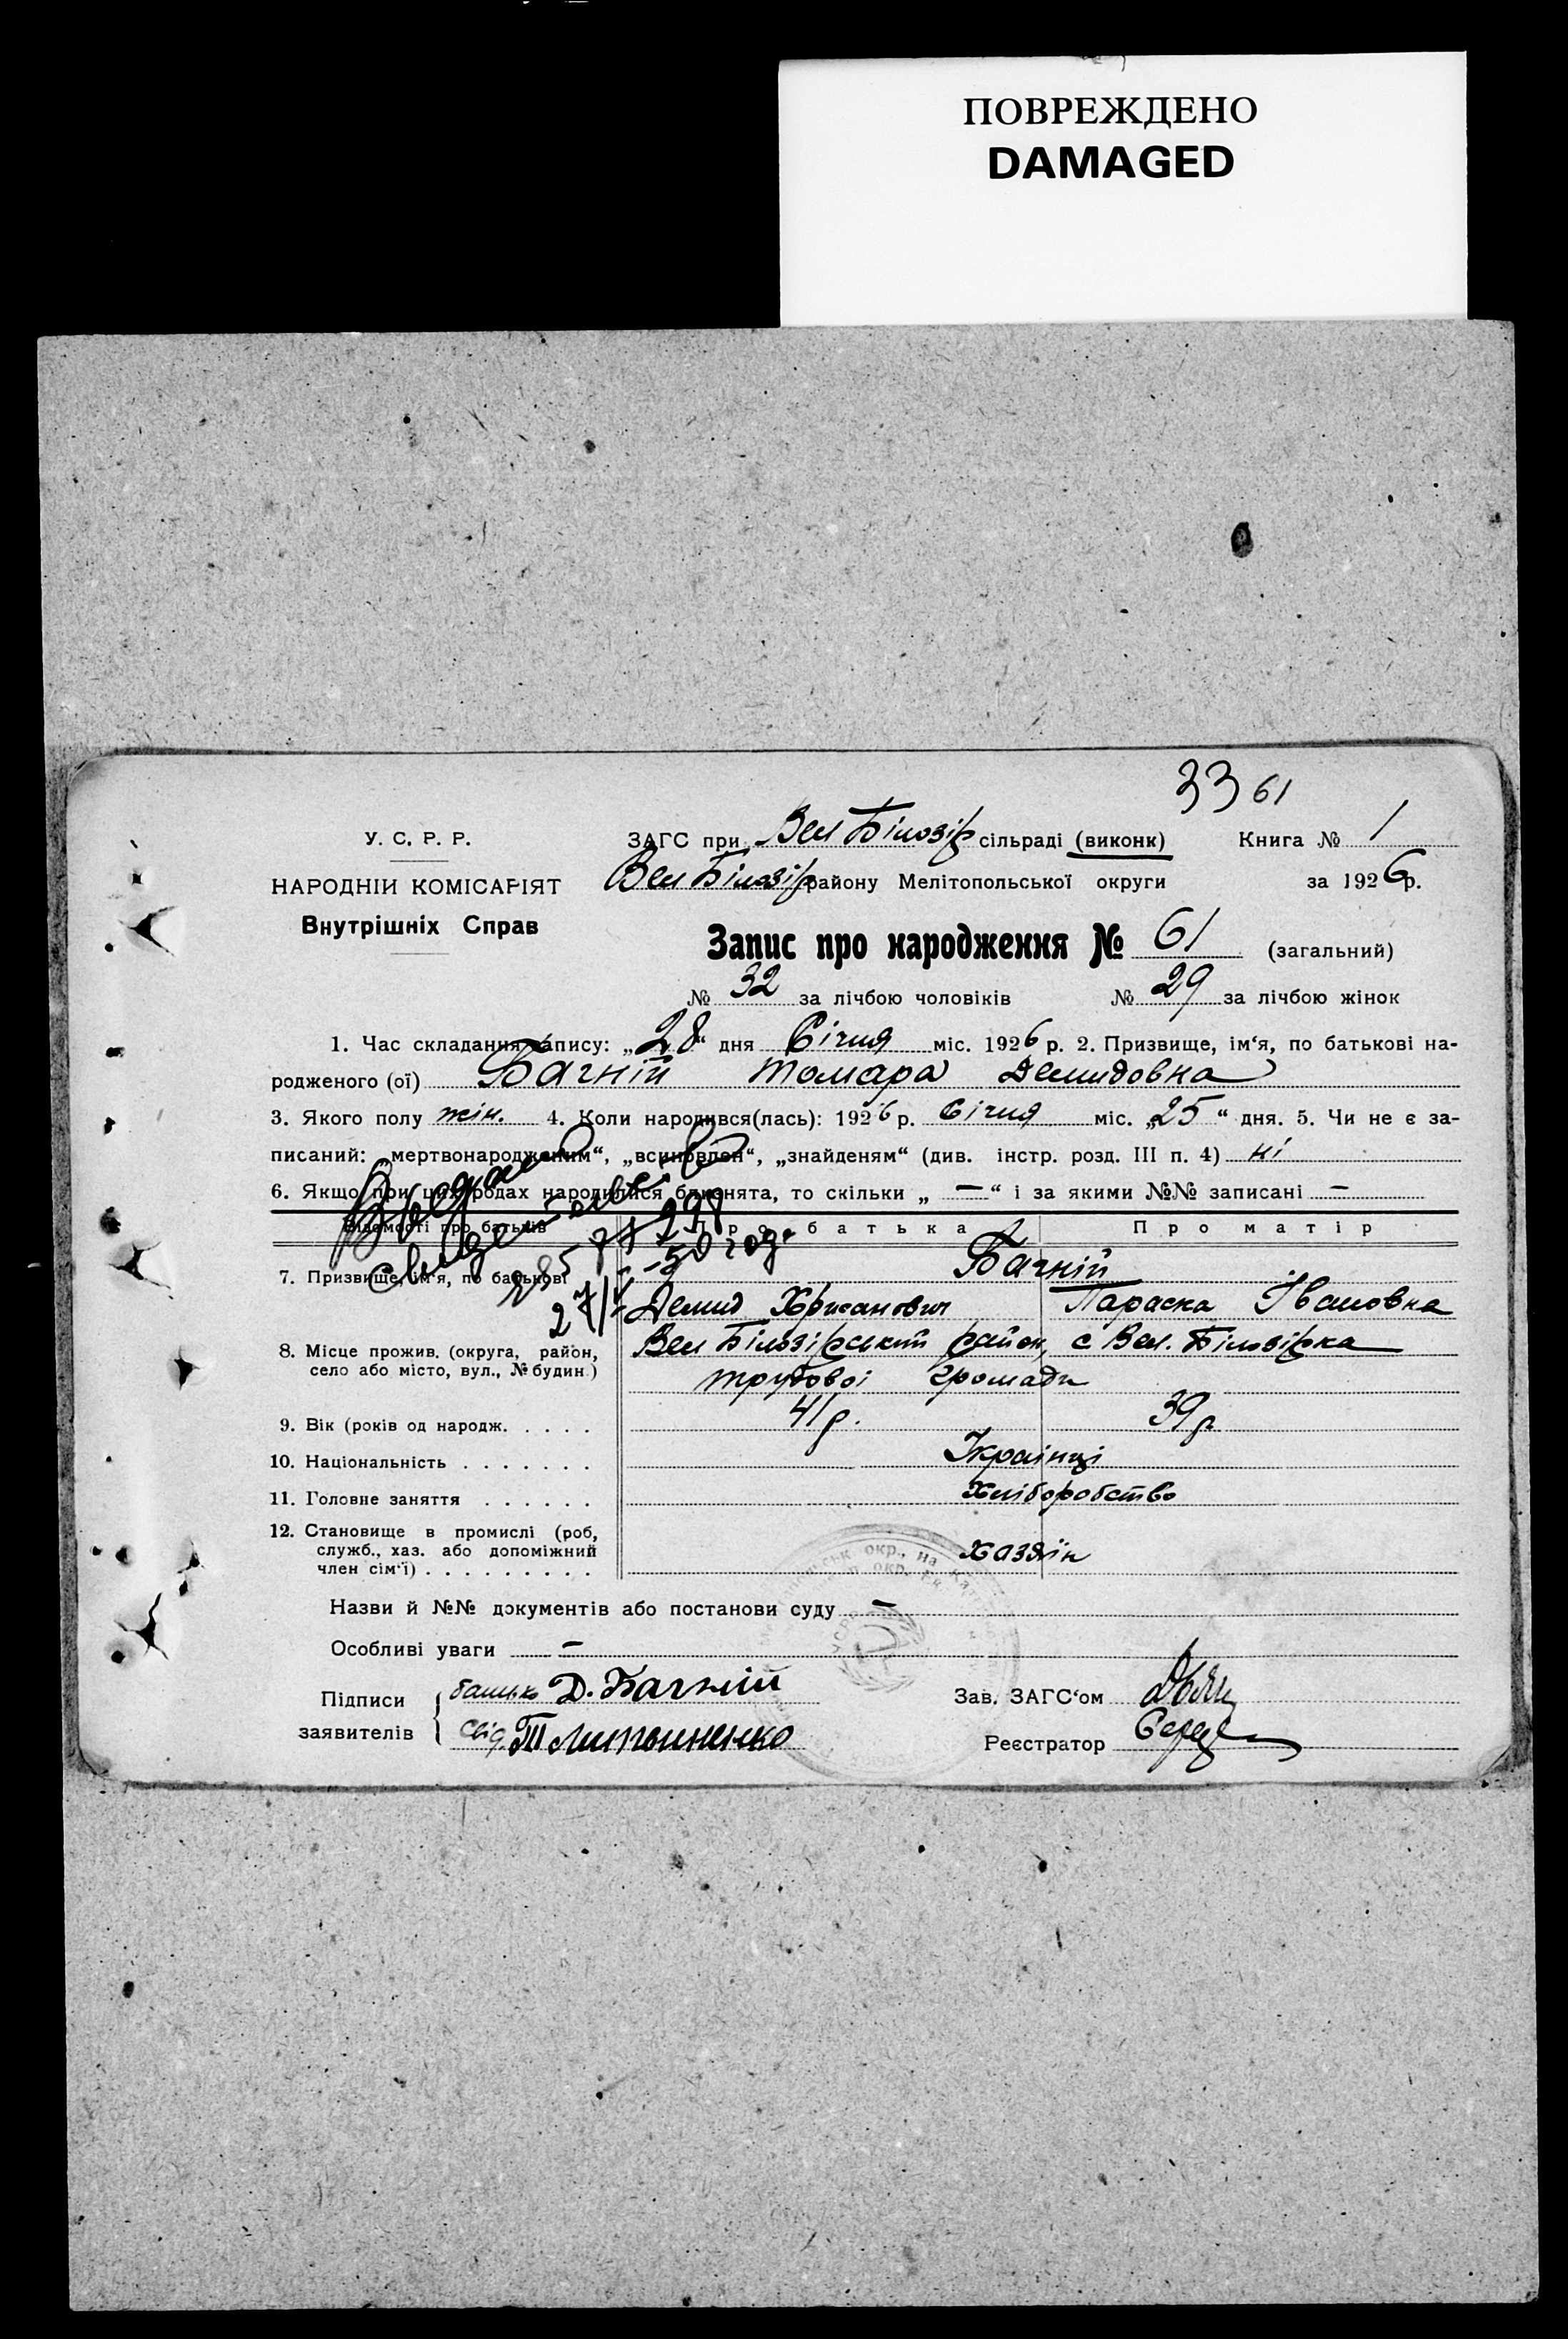 ПОВРЕЖДЕНО
DAMAGED
33 61
У. С. Р. Р.
НАРОДНІЙ КОМІСАРІЯТ
Внутрішніх Справ
ЗАГС при Вел Білозір сільраді (виконк) Книга № 1
Вел Білозір району Мелітопольської округи за 1926 р.
Запис про народження № 61 (загальний)
№ 32 за лічбою чоловіків № 29 за лічбою жінок
1. Час складання запису: „28“ дня Січня міс. 1926 р. 2. Призвище, ім‘я, по батькові на-
родженого (ої) Бачній Томара Демидовна
3. Якого полу жін. 4. Коли народився(лась): 1926 р. Січня міс. „25“ дня. 5. Чи не є за-
писаний: „мертвонародженим“, „всиновлен“, „знайденям“ (див. інстр. розд. III п. 4) ні
6. Якщо при цих родах народилися близнята, то скільки „ — “ і за якими №№ записані —
Відомості про батьків Про батька Про матір
7. Призвище, ім‘я, по батькові Бачній
Демид Хрисанович Параска Івановна
8. Місце прожив. (округа, район, село або місто, вул., № будин.) Вел Білозірський район, с Вел. Білозірка
трудової громади
9. Вік (років од народж. . . . . 41 р. 39 р
10. Національність . . . . . . . Українці
11. Головне заняття . . . . . . Хліборобство
12. Становище в промислі (роб, служб., хаз. або допоміжний член сім‘ї) . . . . . . . . . хазяїн
Назви й №№ документів або постанови суду —
Особливі уваги —
Підписи заявителів
батько Д. Бачній
свід. Т Литвиненко
Зав. ЗАГС‘ом
Реєстратор